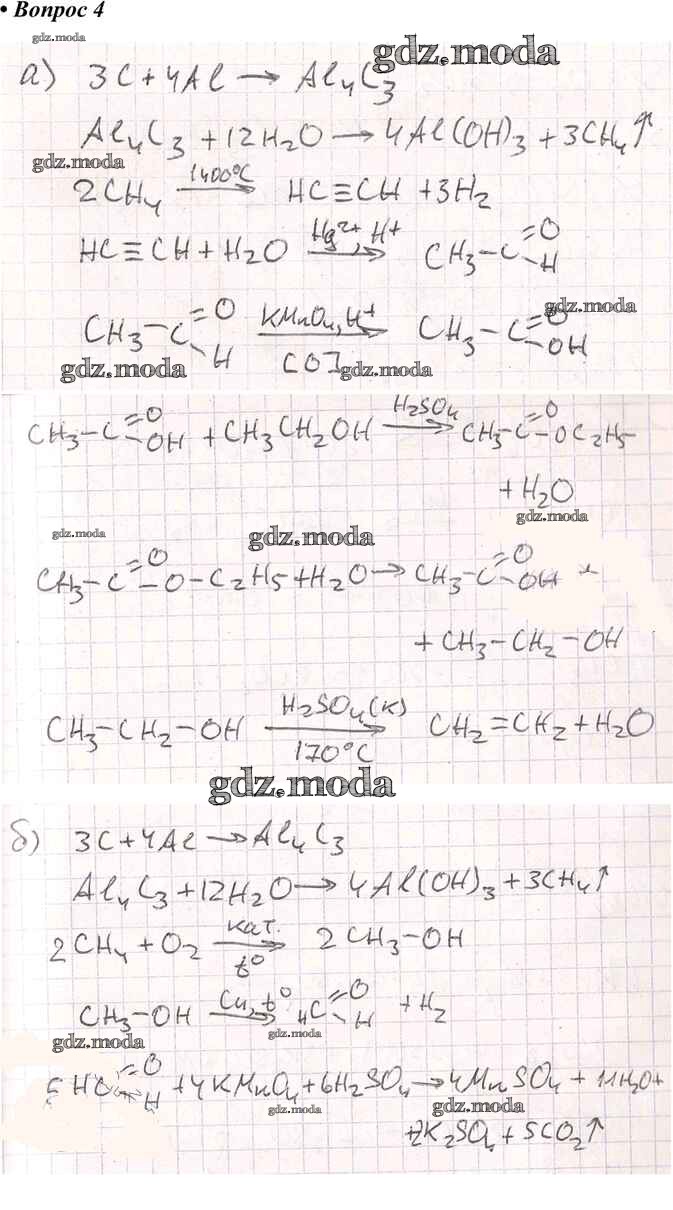 • Вопрос 4
gdz.moda
gdz.moda
а) 3C + 4Al → Al₄C₃
Al₄C₃ + 12H₂O → 4Al(OH)₃ + 3CH₄↑
gdz.moda
2CH₄ 1400°C → HC≡CH + 3H₂
HC≡CH + H₂O Hg²⁺, H⁺ → CH₃–C=O –H
gdz.moda
CH₃–C=O –H KMnO₄, H⁺ [O] → CH₃–C=O –OH
gdz.moda
gdz.moda
CH₃–C=O –OH + CH₃CH₂OH H₂SO₄ → CH₃–C=O –OC₂H₅
+ H₂O
gdz.moda
gdz.moda
gdz.moda
CH₃–C=O –O–C₂H₅ + H₂O → CH₃–C=O –OH +
+ CH₃–CH₂–OH
CH₃–CH₂–OH H₂SO₄(к) 170°C → CH₂=CH₂ + H₂O
gdz.moda
б) 3C + 4Al → Al₄C₃
Al₄C₃ + 12H₂O → 4Al(OH)₃ + 3CH₄↑
2CH₄ + O₂ кат. t° → 2CH₃–OH
CH₃–OH Cu, t° → HC=O –H + H₂
gdz.moda
gdz.moda
5HC=O –H + 4KMnO₄ + 6H₂SO₄ → 4MnSO₄ + 11H₂O +
gdz.moda
gdz.moda
+2K₂SO₄ + 5CO₂↑